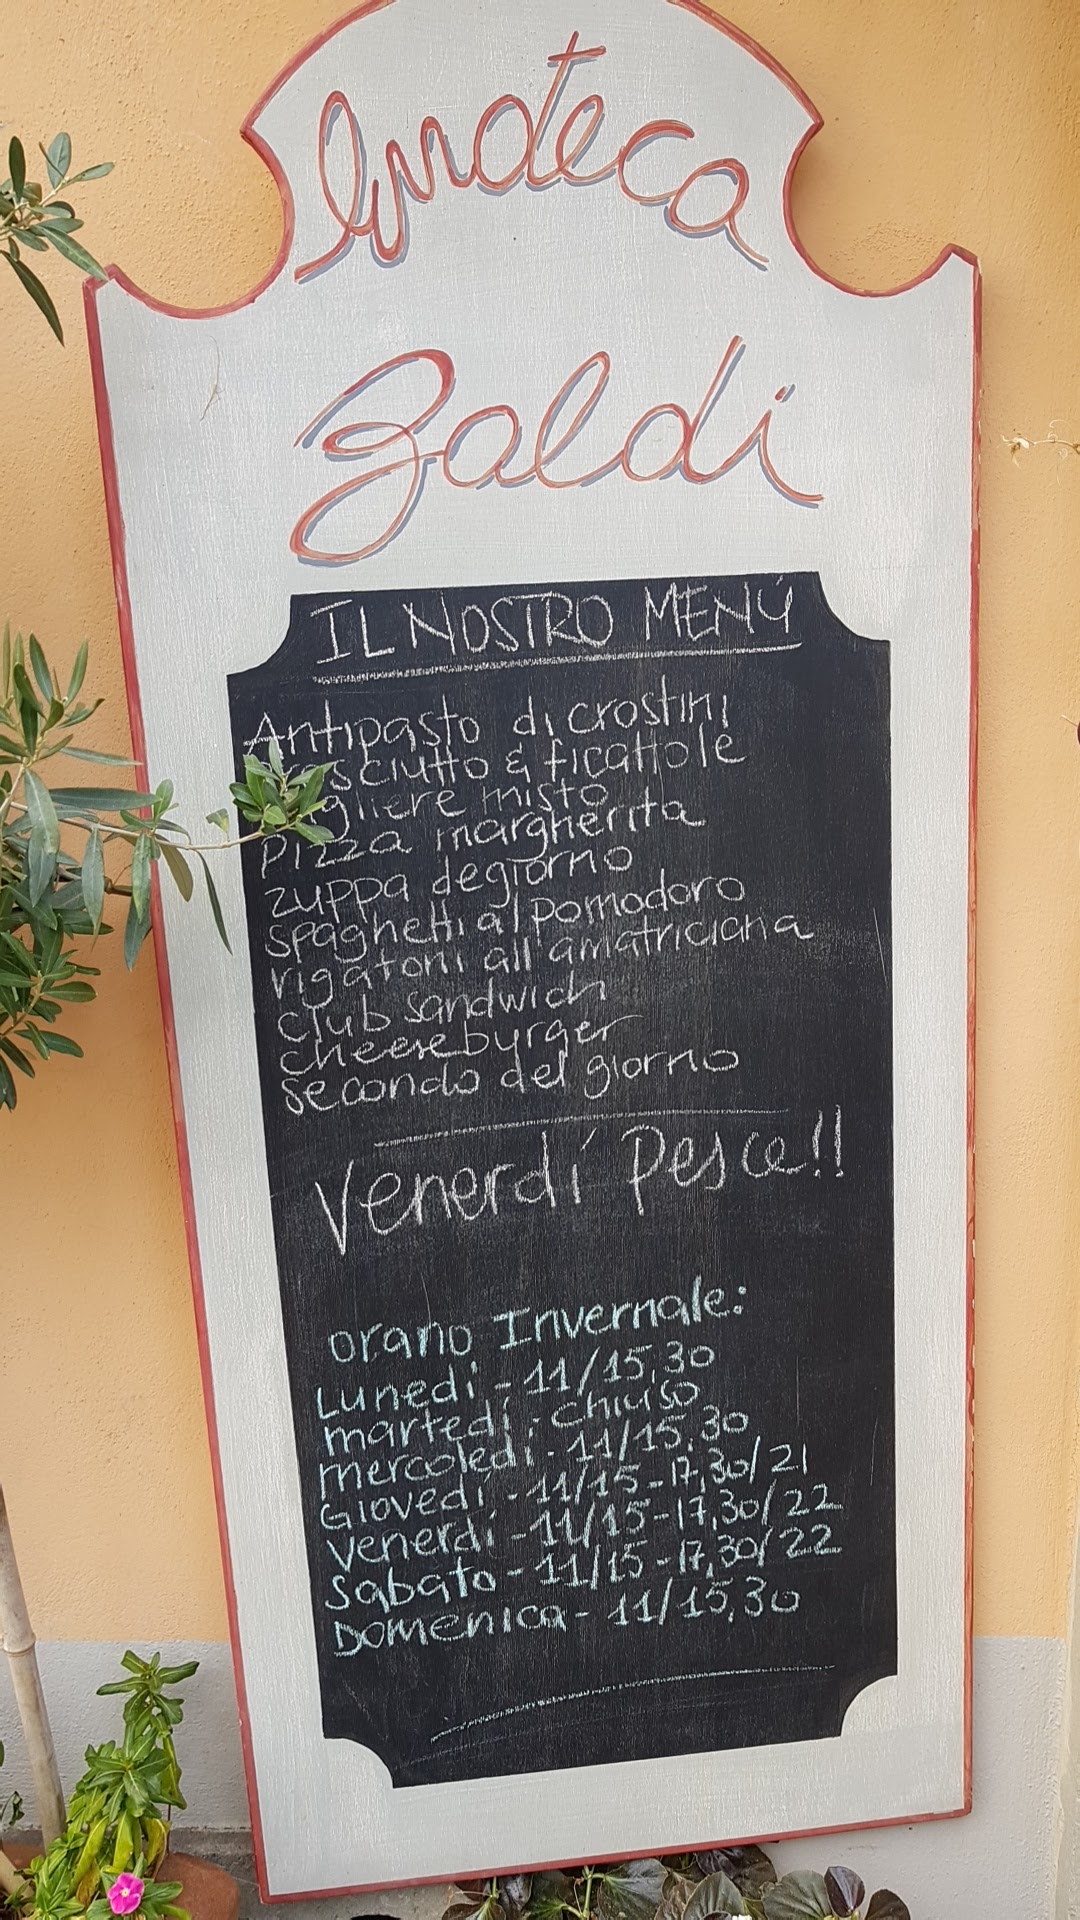 Enoteca
Baldi
IL NOSTRO MENÚ
Antipasto di crostini
& ficattole
misto
pizza margherita
zuppa degiorno
spaghetti al pomodoro
rigatoni all amatriciana
club sandwich
cheeseburger
secondo del giorno
Venerdí pesce!!
orario Invernale:
Lunedi - 11/15,30
martedí - chiuso
mercoledi - 11/15,30
Giovedí - 11/15-17,30/21
Venerdí - 11/15-17,30/22
Sabato - 11/15-17,30/22
Domenica - 11/15,30